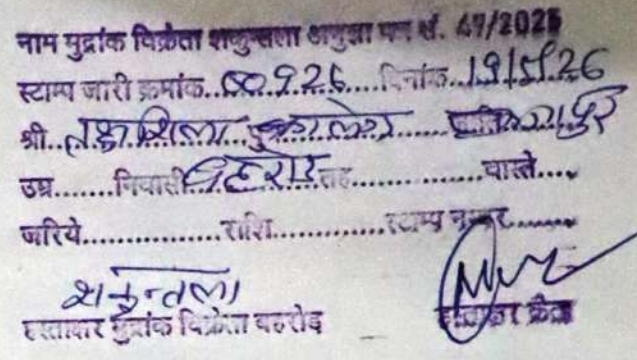 नाम मुद्रांक विक्रेता शकुन्तला अनुज्ञा पत्र सं. 47/2025
स्टाम्प जारी क्रमांक.. 60926....दिनांक..19/5/26
श्री..तक्षशिला
उम्र.......निवासी..बहरोड..तह...............वास्ते....
जरिये................राशि..............स्टाम्प नम्बर........
शकुन्तला
हस्ताक्षर मुद्रांक विक्रेता बहरोड़ हस्ताक्षर क्रेता